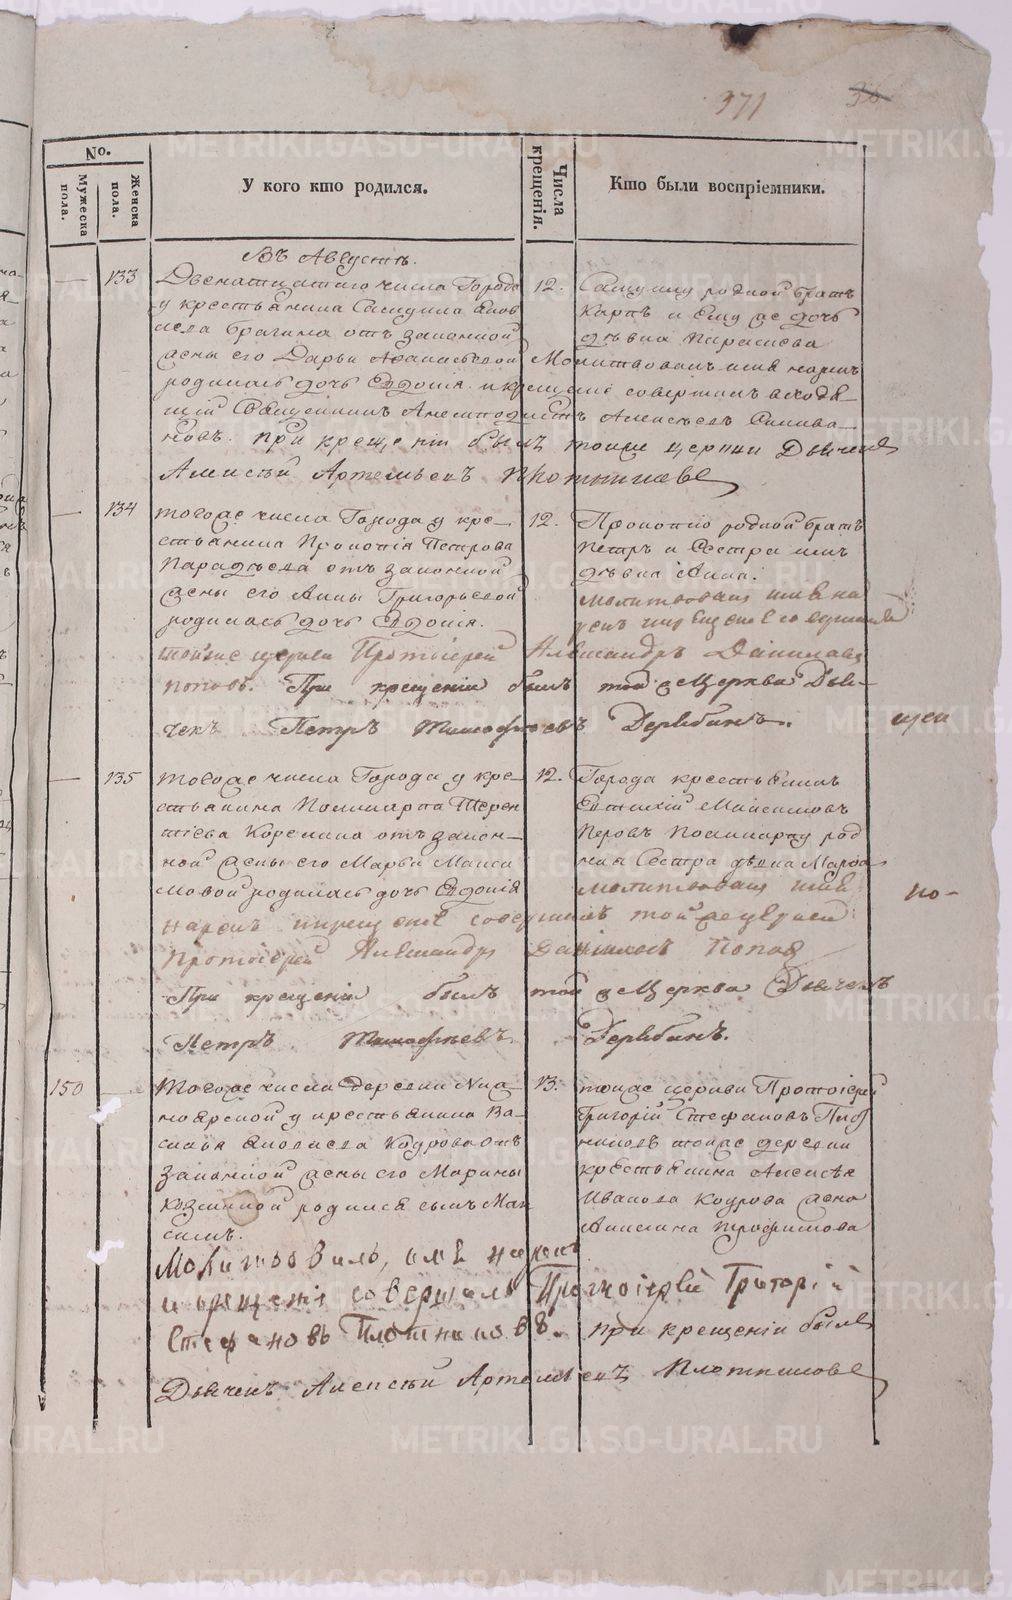 371
36
No.
Мужеска пола.
Женска пола.
У кого кто родился.
Числа крещенія.
Кто были воспріемники.
Въ Августѣ.
133
Двенатцатого числа Города
у крестьянина
Брагина отъ законной
жены его Дарьи
родилась дочь Евдокія.
12.
родной братъ
Карпъ и ему же дочь
дѣвка
Молитвовалъ имя нарекъ
и крещеніе совершилъ
Алексѣевъ
при крещеніи былъ тоже церкви Дьячекъ
Алексѣй Артемьевъ Плотниковъ
134
тогоже числа Города у кре-
стьянина Прокопія Петрова
отъ законной
жены его Анны Григорьевой
родилась дочь Евдокія.
12.
Прокопію родной братъ
Петръ и Сестра имъ
дѣвка Анна.
молитвовалъ имя на
рекъ и крещеніе совершилъ
тойже церкви Протоіерей Александръ Даниловъ
Поповъ. При крещеніи былъ той же Церкви Дья-
чекъ Петръ Тимофѣевъ Дерябинъ.
135
тогоже числа Города у кре-
стьянина Поликарпа Терен
тіева Корелина отъ закон-
ной жены его Марьи Макси
мовой родилась дочь Евдокія
12.
Города крестьянинъ
Евтихій Максимовъ
Перовъ Поликарпу род
ная Сестра дѣвка Марфа
молитвовалъ имя
нарекъ и крещеніе совершилъ той же церкви
Протоіерей Александръ Даниловъ Поповъ
При крещеніи былъ той же Церкви Дьячекъ
Петръ Тимофѣевъ Дерябинъ.
по-
150
Тогоже числа деревни
у крестьянина Ва-
силья
законной жены его Марины
Козминой родился сынъ Мак
симъ.
13.
тоже церкви Протоіерей
Григорій Стефановъ Плот
никовъ тоже деревни
крестьянина Алексѣя
Иванова Кодрова жена
Трофимова
Молитвовалъ, имя нарекъ
и крещеніе совершалъ Протоіерей Григорій
Стефановъ Плотниковъ. при крещеніи былъ
Дьячекъ Алексѣй Артемьевъ Плотниковъ
METRIKI.GASO-URAL.RU